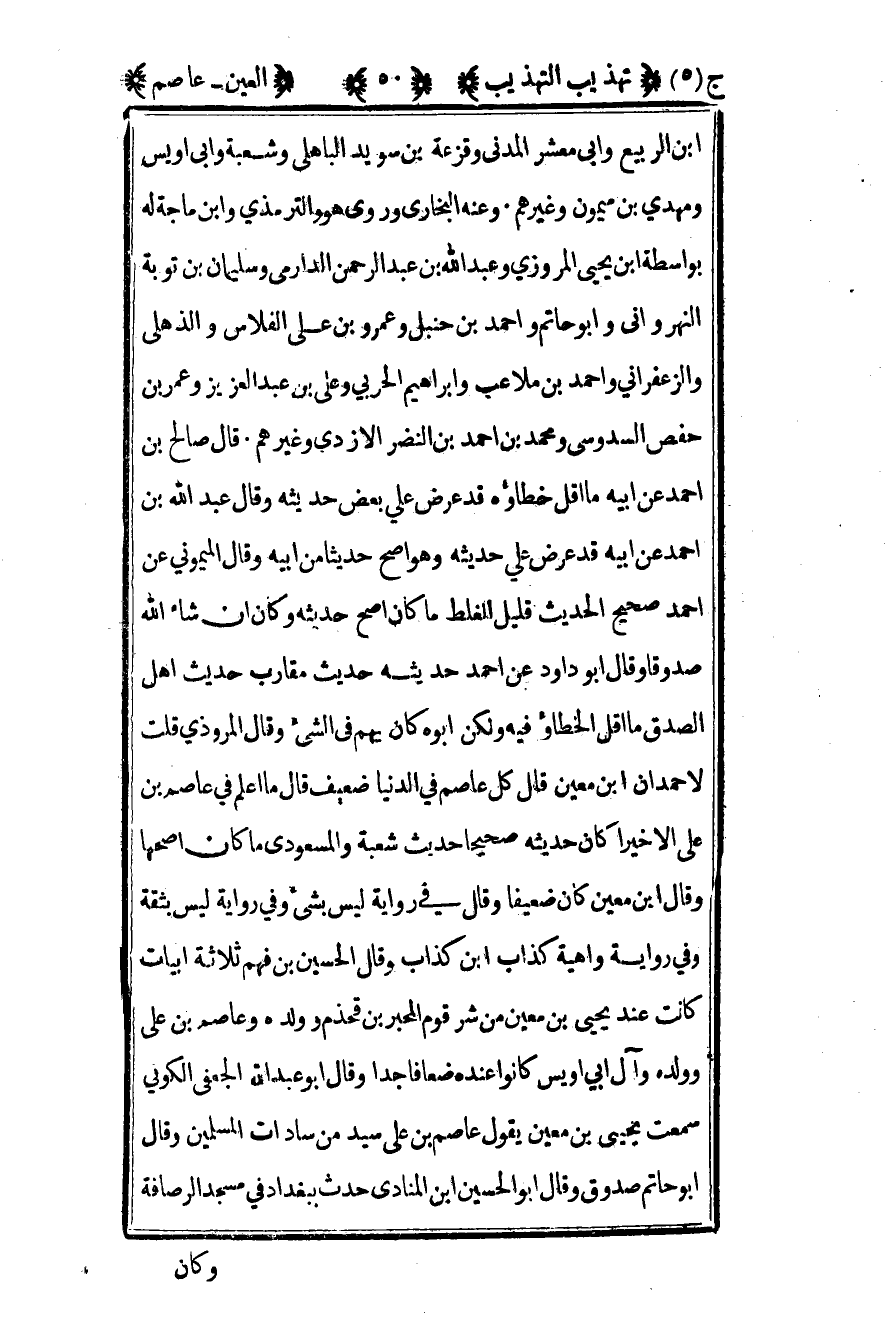 ج (٥) ﴿ تهذيب التهذيب ﴾ ﴿ ٥٠ ﴾ ﴿ العين ـ عاصم ﴾
ابن الربيع وابى معشر المدنى وقزعة بن سويد الباهلى وشعبة وابى اويس
ومهدي بن ميمون وغيرهم · وعنه البخارى وروى هو والترمذي وابن ماجة له
بواسطة ابن يحيى المروزي وعبد الله بن عبد الرحمن الدارمى وسليمان بن توبة
النهروانى وابو حاتم واحمد بن حنبل وعمرو بن على الفلاس والذهلى
والزعفراني واحمد بن ملاعب وابراهيم الحربي وعلى بن عبد العزيز وعمر بن
حفص السدوسى ومحمد بن احمد بن النضر الازدي وغيرهم · قال صالح بن
احمد عن ابيه ما اقل خطاؤه قد عرض علي بعض حديثه وقال عبد الله بن
احمد عن ابيه قد عرض علي حديثه وهو اصح حديثا من ابيه وقال الميموني عن
احمد صحيح الحديث قليل الغلط ما كان اصح حديثه وكان ان شاء الله
صدوقا وقال ابو داود عن احمد حديثه حديث مقارب حديث اهل
الصدق ما اقل الخطاؤ فيه ولكن ابوه كان يهم فى الشئ وقال المروذي قلت
لاحمد ان ابن معين قال كل عاصم في الدنيا ضعيف قال ما اعلم في عاصم بن
على الا خيرا كان حديثه صحيحا حديث شعبة والمسعودى ما كان اصحها
وقال ابن معين كان ضعيفا وقال في رواية ليس بشئ وفي رواية ليس بثقة
وفي رواية واهية كذاب ابن كذاب وقال الحسين بن فهم ثلاثة ابيات
كانت عند يحيى بن معين من شر قوم المحبر بن قحذم وولده وعاصم بن على
وولده وآل ابي اويس كانوا عنده ضعافا جدا وقال ابو عبد الله الجعفى الكوفي
سمعت يحيى بن معين يقول عاصم بن على سيد من سادات المسلمين وقال
ابو حاتم صدوق وقال ابو الحسين ابن المنادى حدث ببغداد في مسجد الرصافة
وكان